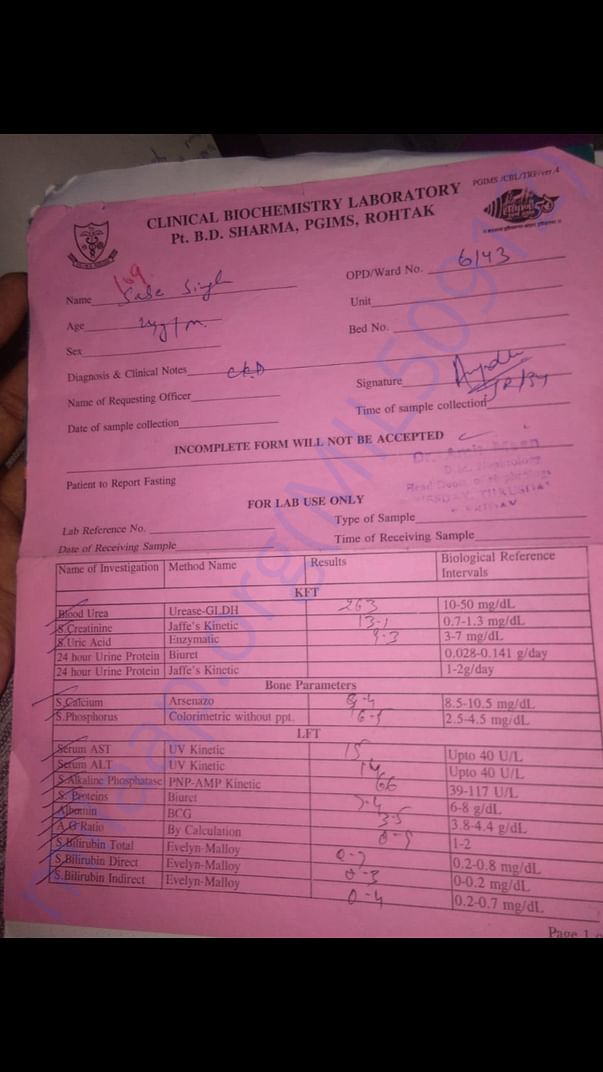 PGIMS /CBL/TRF/ver.4
CLINICAL BIOCHEMISTRY LABORATORY
Pt. B.D. SHARMA, PGIMS, ROHTAK
169
Name Singh
OPD/Ward No. 6/43
Age
Unit
Sex
Bed No.
Diagnosis & Clinical Notes CKD
Name of Requesting Officer
Signature
Date of sample collection
Time of sample collection
INCOMPLETE FORM WILL NOT BE ACCEPTED
Patient to Report Fasting
Nephrology
FOR LAB USE ONLY
Lab Reference No.
Type of Sample
Date of Receiving Sample
Time of Receiving Sample
Name of Investigation Method Name Results Biological Reference Intervals
KFT
Blood Urea Urease-GLDH 263 10-50 mg/dL
S.Creatinine Jaffe's Kinetic 13.1 0.7-1.3 mg/dL
S.Uric Acid Enzymatic 9.3 3-7 mg/dL
24 hour Urine Protein Biuret 0.028-0.141 g/day
24 hour Urine Protein Jaffe's Kinetic 1-2g/day
Bone Parameters
S.Calcium Arsenazo 8.4 8.5-10.5 mg/dL
S.Phosphorus Colorimetric without ppt. 6.5 2.5-4.5 mg/dL
LFT
Serum AST UV Kinetic 15 Upto 40 U/L
Serum ALT UV Kinetic 14 Upto 40 U/L
S.Alkaline Phosphatase PNP-AMP Kinetic 66 39-117 U/L
S. Proteins Biuret 6-8 g/dL
Albumin BCG 3.5 3.8-4.4 g/dL
A.G Ratio By Calculation 1-2
S.Bilirubin Total Evelyn-Malloy 0.7 0.2-0.8 mg/dL
S.Bilirubin Direct Evelyn-Malloy 0.3 0-0.2 mg/dL
S.Bilirubin Indirect Evelyn-Malloy 0.4 0.2-0.7 mg/dL
Page 1